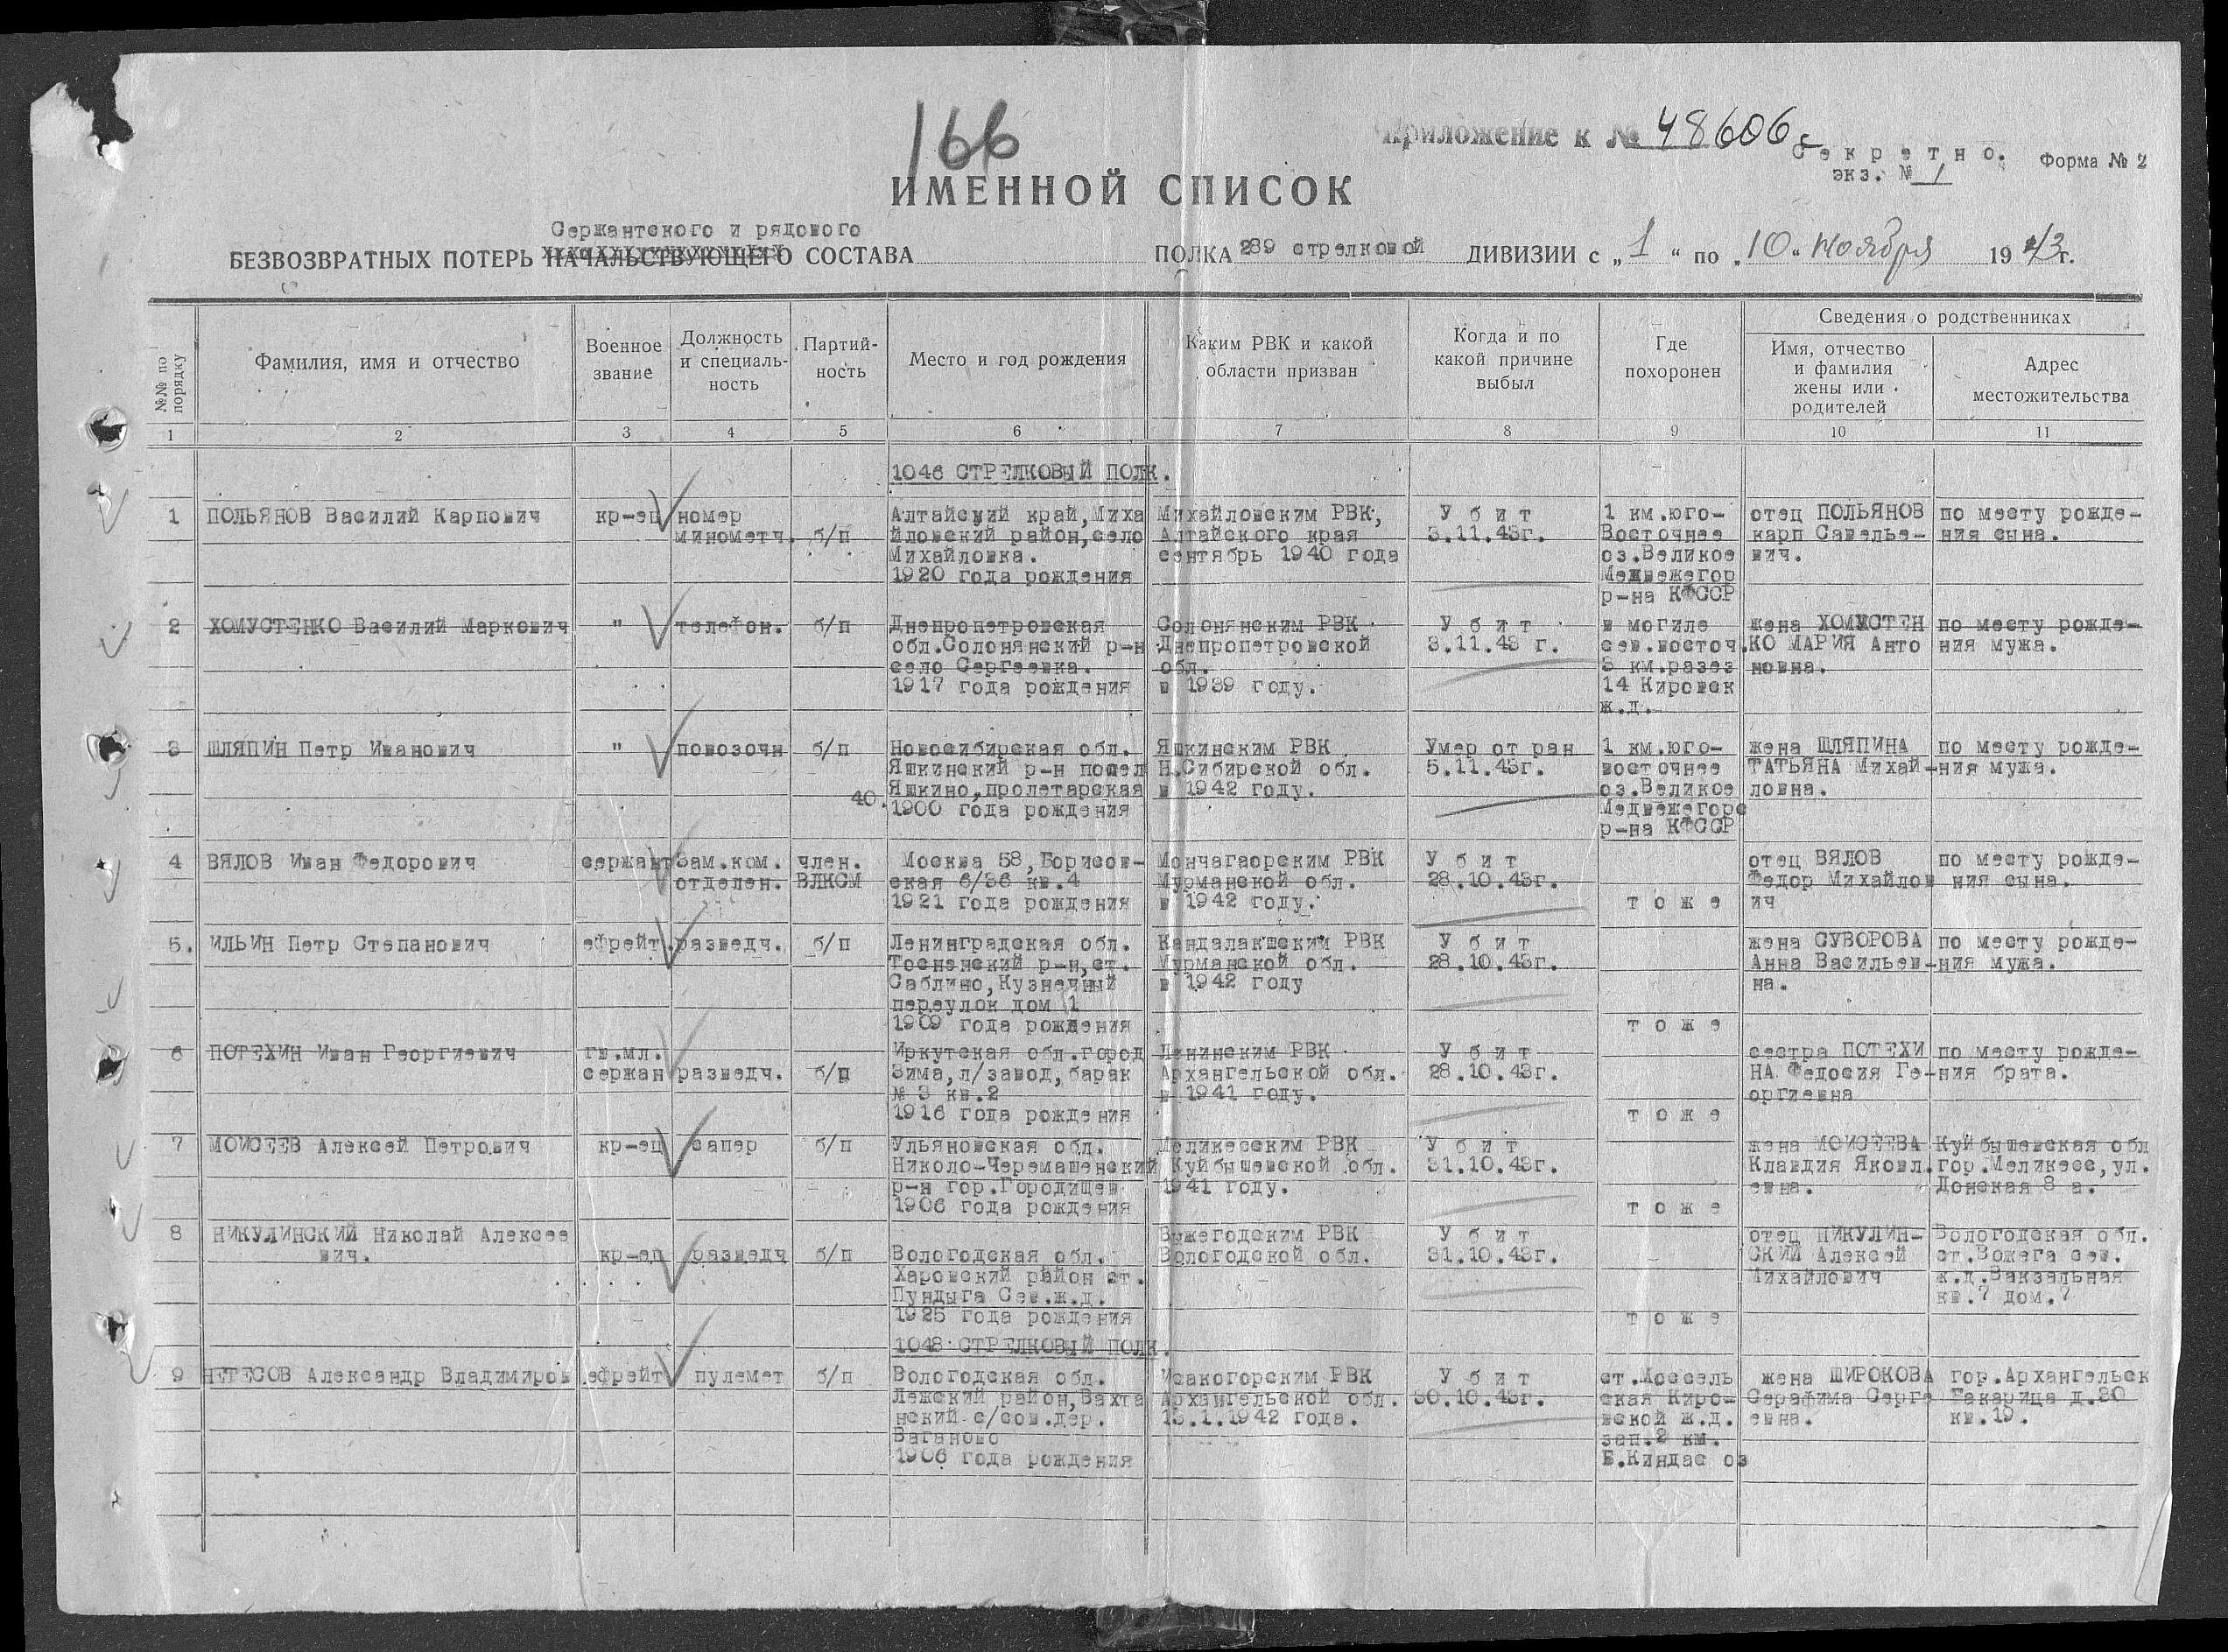 166
Приложение к № 48606с
Секретно.
экз. № 1
Форма № 2
ИМЕННОЙ СПИСОК
Сержантского и рядового
БЕЗВОЗВРАТНЫХ ПОТЕРЬ НАЧАЛЬСТВУЮЩЕГО СОСТАВА ПОЛКА 289 стрелковой ДИВИЗИИ с „1“ по „10“ ноября 1943г.
№№ по порядку
Фамилия, имя и отчество
Военное звание
Должность и специаль-ность
Партий-ность
Место и год рождения
Каким РВК и какой области призван
Когда и по какой причине выбыл
Где похоронен
Сведения о родственниках
Имя, отчество и фамилия жены или родителей
Адрес местожительства
1 2 3 4 5 6 7 8 9 10 11
1046 СТРЕЛКОВЫЙ ПОЛК.
1 ПОЛЬЯНОВ Василий Карпович кр-ец номер Алтайский край, Миха Михайловским РВК, Убит 1 км.юго- отец ПОЛЬЯНОВ по месту рожде-
минометч. б/п йловский район, село Алтайского края 3.11.43г. Восточнее карп Савелье- ния сына.
Михайловка. сентябрь 1940 года оз.Великое вич.
1920 года рождения Медвежегор
р-на КФССР
2 ХОМУСТЕНКО Василий Маркович " телефон. б/п Днепропетровская Солонянским РВК Убит в могиле жена ХОМУСТЕН по месту рожде-
обл.Солонянский р-н Днепропетровской 3.11.43 г. сев.восточ. КО МАРИЯ Анто ния мужа.
село Сергеевка. обл. 3 км.разез новна.
1917 года рождения в 1939 году. 14 Кировск
ж.д.
3 ШЛЯПИН Петр Иванович " повозочн б/п Новосибирская обл. Яшкинским РВК Умер от ран 1 км.юго- жена ШЛЯПИНА по месту рожде-
Яшкинский р-н посел Н.Сибирской обл. 5.11.43г. восточнее ТАТЬЯНА Михай- ния мужа.
Яшкино, пролетарская в 1942 году. оз.Великое ловна.
40. 1900 года рождения Медвежегорс
р-на КФССР
4 ВЯЛОВ Иван Федорович сержант Зам.ком. член. Москва 58, Борисов- Мончагаорским РВК Убит отец ВЯЛОВ по месту рожде-
отделен. ВЛКСМ ская 6/36 кв.4 Мурманской обл. 28.10.43г. Федор Михайлов ния сына.
1921 года рождения в 1942 году. тоже ич
5. ИЛЬИН Петр Степанович ефрейт. разведч. б/п Ленинградская обл. Кандалакшским РВК Убит жена СУВОРОВА по месту рожде-
Тосненский р-н, ст. Мурманской обл. 28.10.43г. Анна Васильев- ния мужа.
Саблино, Кузнечный в 1942 году на.
переулок дом 1
1909 года рождения тоже
6 ПОТЕХИН Иван Георгиевич гв.мл. Иркутская обл.город Ленинским РВК Убит сестра ПОТЕХИ по месту рожде-
сержан разведч. б/п Зима, л/завод, барак Архангельской обл. 28.10.43г. НА Федосия Ге- ния брата.
№ 3 кв.2 в 1941 году. оргиевна
1916 года рождения тоже
7 МОИСЕЕВ Алексей Петрович кр-ец сапер б/п Ульяновская обл. Меликесским РВК Убит жена МОИСЕЕВА Куйбышевская обл
Николо-Черемашенский Куйбышевской обл. 31.10.43г. Клавдия Яковл. гор.Меликесс, ул.
р-н гор.Городищев 1941 году. евна. Донская 8 а.
1906 года рождения тоже
8 НИКУЛИНСКИЙ Николай Алексее Выжегодским РВК Убит отец НИКУЛИН- Вологодская обл.
вич. кр-ец разведч б/п Вологодская обл. Вологодской обл. 31.10.43г. СКИЙ Алексей ст.Вожега сев.
Харовский район ст. Михайлович ж.д.Вакзальная
Пундыга Сев.ж.д. кв.7 дом.7
1925 года рождения тоже
1048 СТРЕЛКОВЫЙ ПОЛК.
9 НЕТЕСОВ Александр Владимиров ефрейт пулемет б/п Вологодская обл. Исакогорским РВК Убит ст.Моссель жена ШИРОКОВА гор.Архангельск
Лежский район, Вахта Архангельской обл. 30.10.43г. ская Киро- Серафима Серге Бакарица д.30
нский с/сов.дер. 13.1.1942 года. вской ж.д. евна. кв.19.
Ваганово зап.2 км.
1906 года рождения Б.Киндас оз